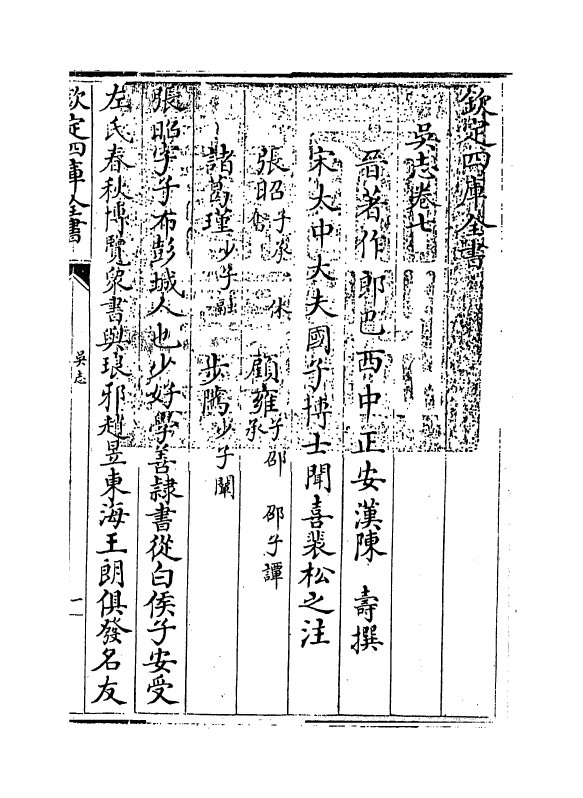 欽定四庫全書
吳志卷七
晉著作郎巴西中正安漢陳 壽撰
宋太中大夫國子博士聞喜裴松之注
張昭子承 休 顧雍子邵 邵子譚 承
諸葛瑾少子融 步隲少子闡
張昭字子布彭城人也少好學善隸書從白侯子安受
左氏春秋博覽衆書與琅邪趙昱東海王朗俱發名友
欽定四庫全書
吳志
一